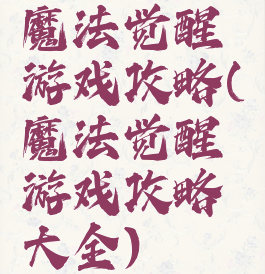 魔法觉醒
游戏攻略(
魔法觉醒
游戏攻略
大全)